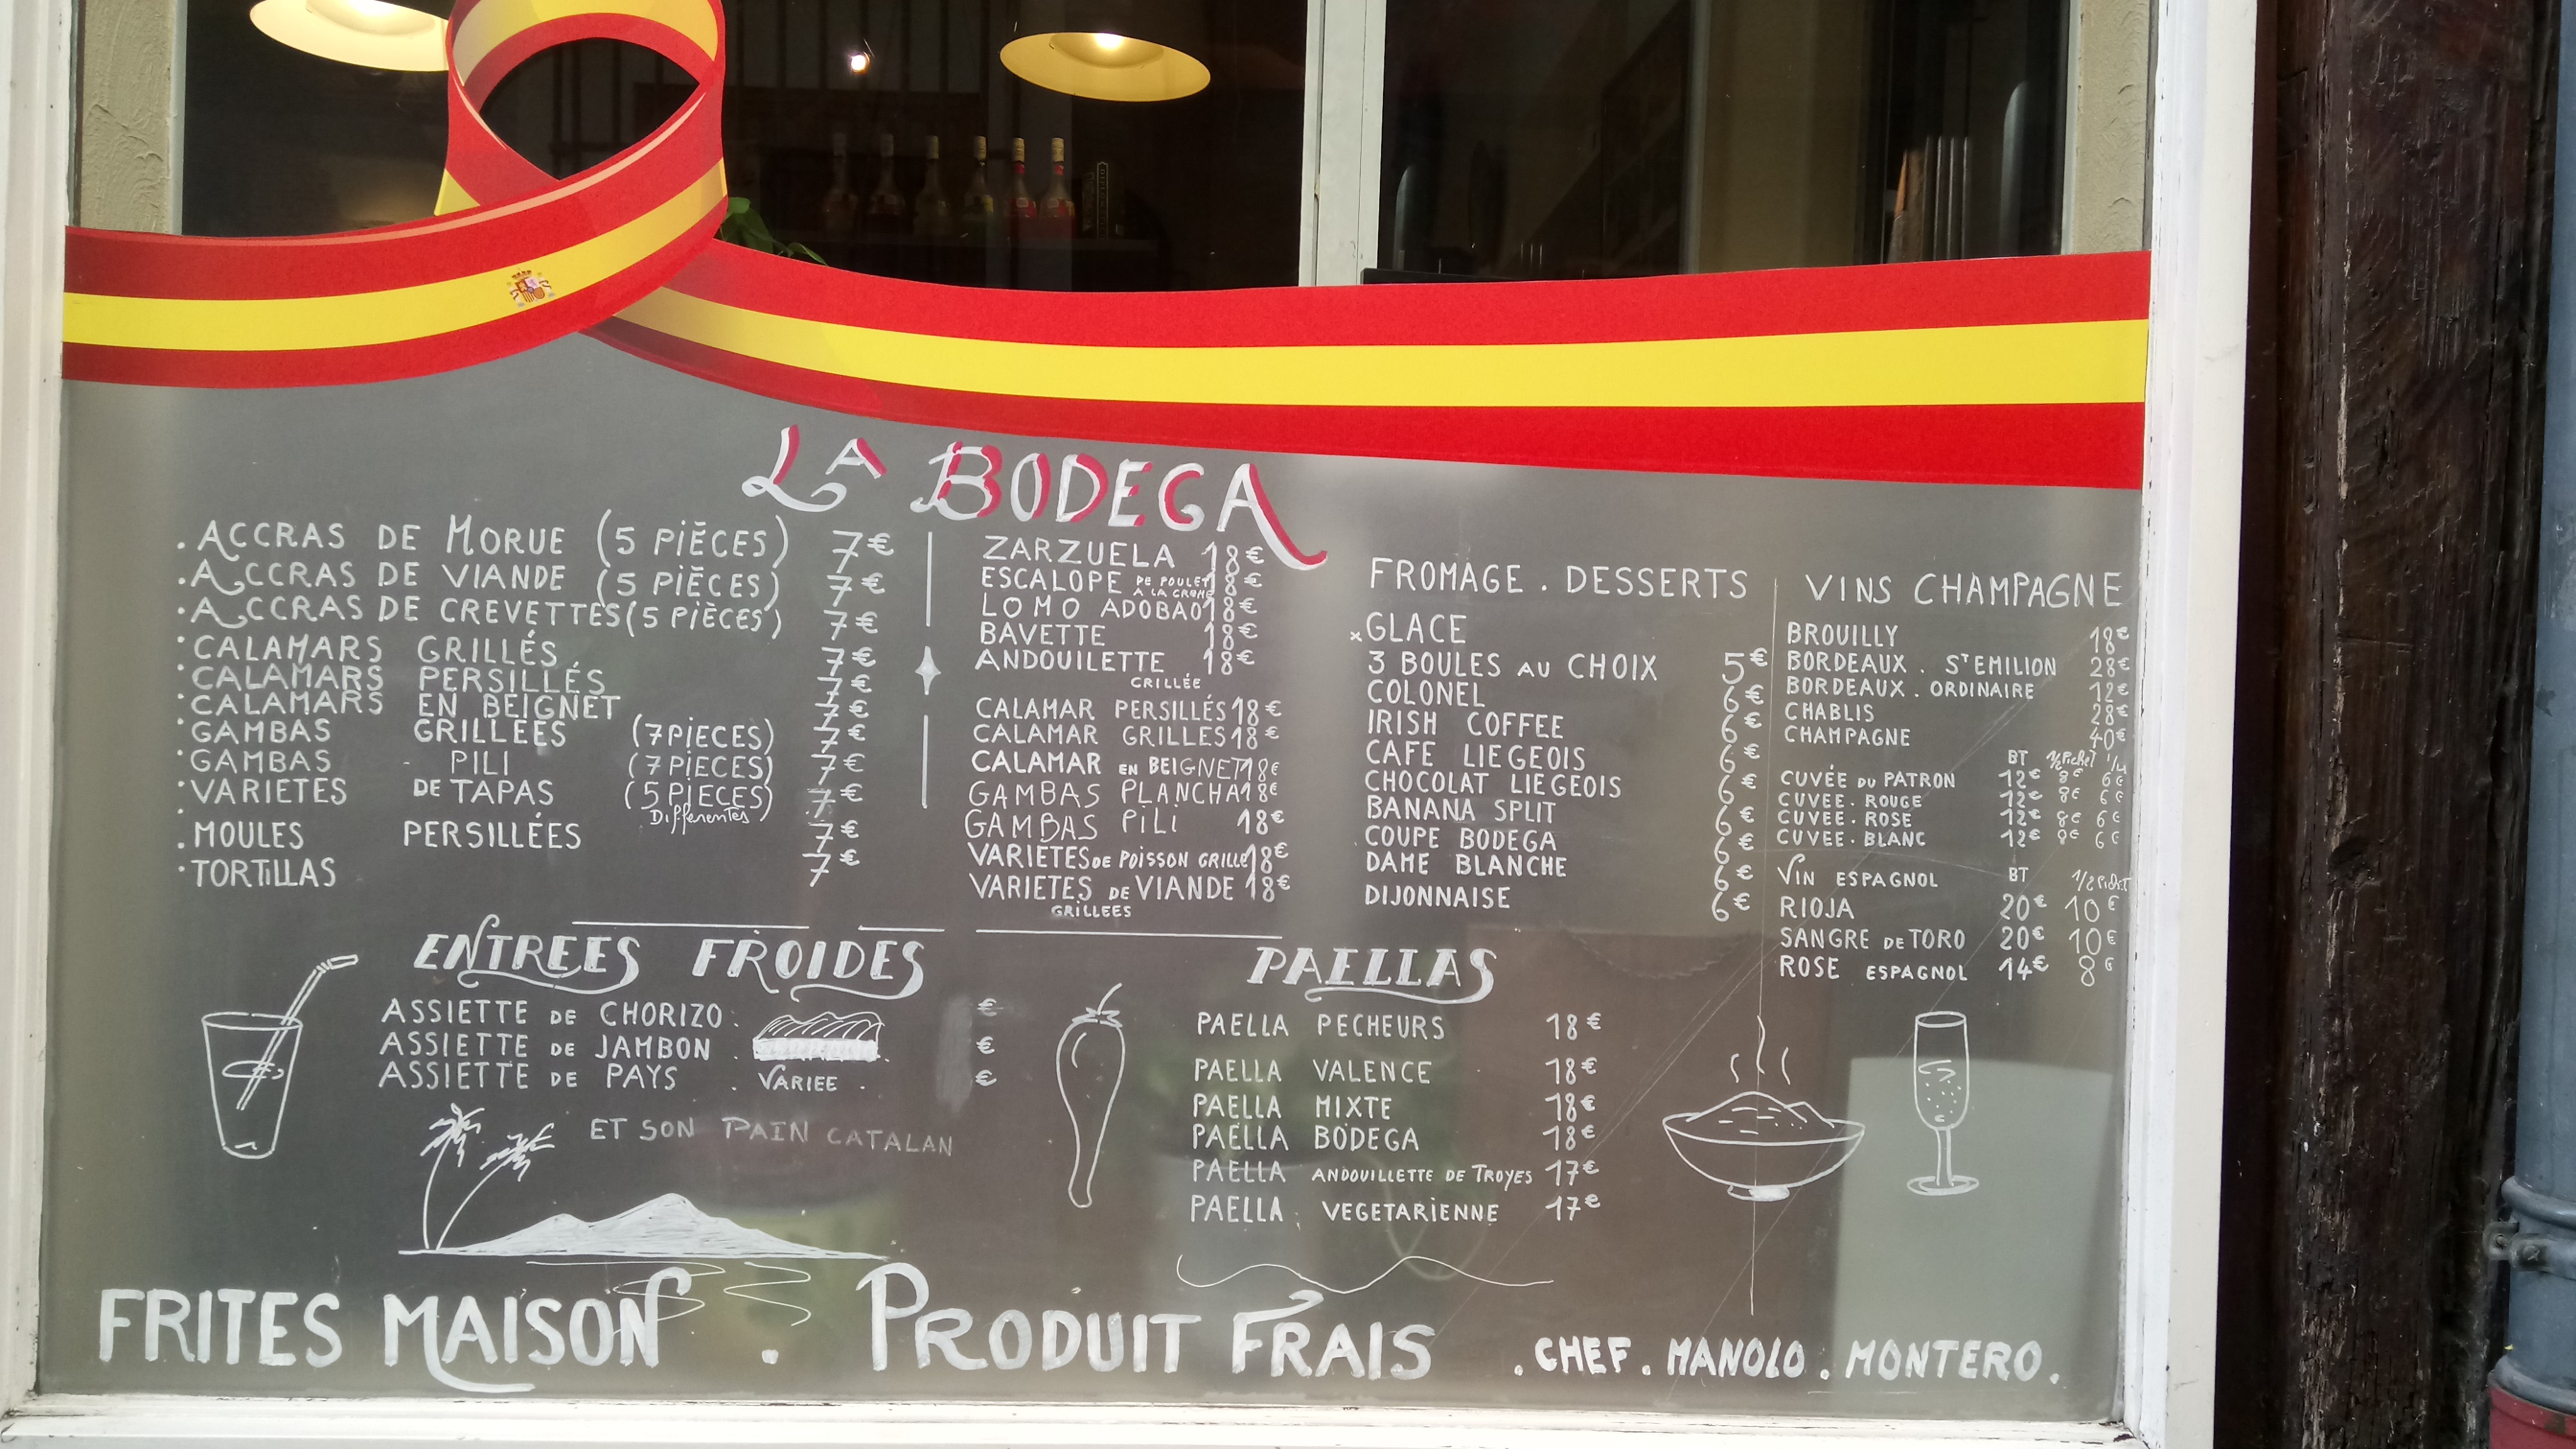 LA BODEGA
. ACCRAS DE MORUE (5 PIÈCES) 7€
. ACCRAS DE VIANDE (5 PIÈCES) 7€
. ACCRAS DE CREVETTES (5 PIÈCES) 7€
. CALAMARS GRILLÉS 7€
. CALAMARS PERSILLÉS 7€
. CALAMARS EN BEIGNET 7€
. GAMBAS GRILLEES (7 PIECES) 7€
. GAMBAS - PILI (7 PIECES) 7€
. VARIETES DE TAPAS (5 PIECES) 7€
Differentes)
. MOULES PERSILLÉES 7€
. TORTILLAS 7€
ZARZUELA 18€
ESCALOPE DE POULET A LA CREME 18€
LOMO ADOBAO 18€
BAVETTE 18€
ANDOUILETTE 18€
GRILLÉE
CALAMAR PERSILLÉS 18€
CALAMAR GRILLES 18€
CALAMAR EN BEIGNET 18€
GAMBAS PLANCHA 18€
GAMBAS PILI 18€
VARIETES DE POISSON GRILLE 18€
VARIETES DE VIANDE 18€
GRILLEES
FROMAGE . DESSERTS
x GLACE
3 BOULES AU CHOIX 5€
COLONEL 6€
IRISH COFFEE 6€
CAFE LIEGEOIS 6€
CHOCOLAT LIEGEOIS 6€
BANANA SPLIT 6€
COUPE BODEGA 6€
DAME BLANCHE 6€
DIJONNAISE 6€
VINS CHAMPAGNE
BROUILLY 18€
BORDEAUX . ST EMILION 28€
BORDEAUX . ORDINAIRE 12€
CHABLIS 28€
CHAMPAGNE 40€
BT 1/2 Pichet 1/4
CUVÉE DU PATRON 12€ 8€ 6€
CUVEE . ROUGE 12€ 8€ 6€
CUVEE . ROSE 12€ 8€ 6€
CUVEE . BLANC 12€ 8€ 6€
VIN ESPAGNOL BT 1/2 Pichet
RIOJA 20€ 10€
SANGRE DE TORO 20€ 10€
ROSE ESPAGNOL 14€ 8€
ENTREES FROIDES
ASSIETTE DE CHORIZO . €
ASSIETTE DE JAMBON . €
ASSIETTE DE PAYS . VARIEE . €
ET SON PAIN CATALAN
PAELLAS
PAELLA PECHEURS 18€
PAELLA VALENCE 18€
PAELLA MIXTE 18€
PAELLA BODEGA 18€
PAELLA ANDOUILLETTE DE TROYES 17€
PAELLA . VEGETARIENNE 17€
FRITES MAISON . PRODUIT FRAIS . CHEF . MANOLO . MONTERO .